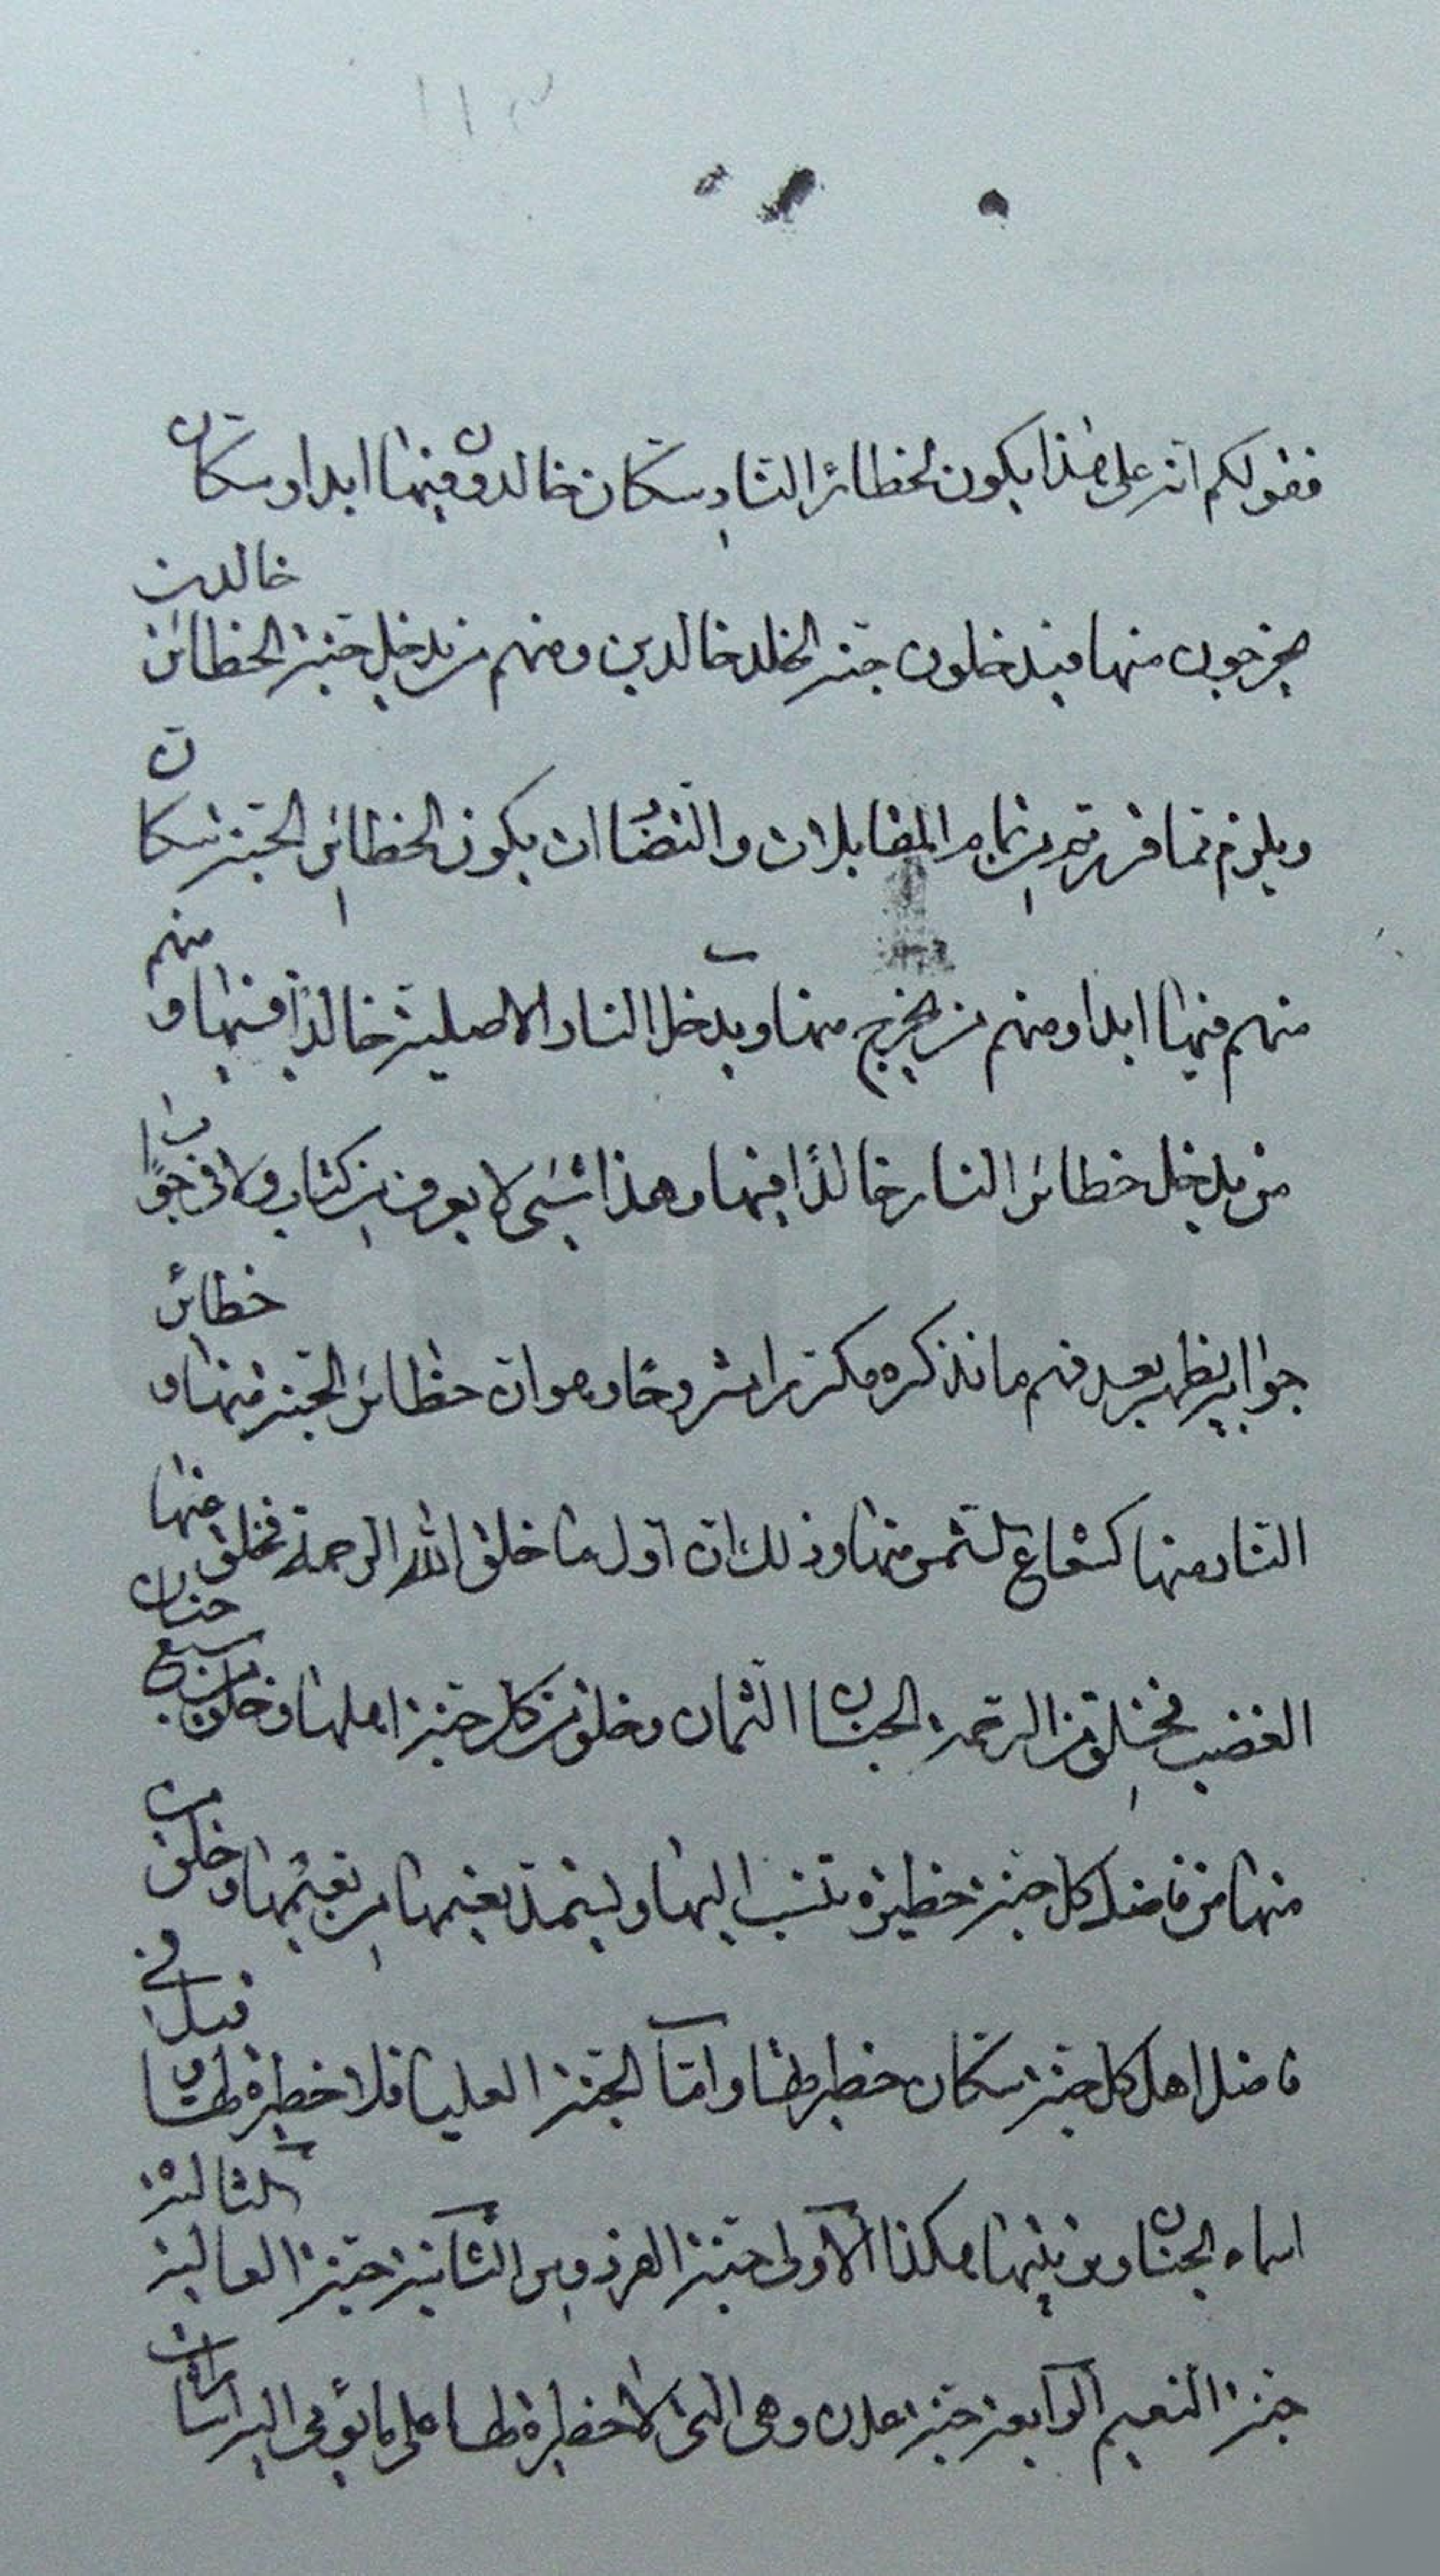 فقولكم انه على هذا يكون لحظائر النار سكان خالدون فيها ابدا وسكان
يخرجون منها فيدخلون جنة الخلد خالدين ومنهم من يدخل جنة الحظائر خالدين
ويلزم مما قررتم من تمام المقابلات والتضاد ان يكون لحظائر الجنة سكان
منهم فيها ابدا ومنهم من يخرج منها ويدخل النار الاصلية خالدًا فيها ومنهم
من يدخل حظائر النار خالدًا فيها وهذا شئ لا يعرف من كتاب ولا في جواب
جوابه يظهر بعد فهم ما نذكره مكررا مشروحًا وهو ان حظائر الجنة منها وحظائر
النار منها كشعاع الشمس منها وذلك ان اول ما خلق الله الرحمة فخلق منها
الغضب فخلق من الرحمة الجنان الثمان وخلق من كل جنة اهلها وخلق من سبع جنان
منها من فاضل كل جنة حظيرة تنسب اليها ويستمد نعيمها من نعيمها وخلق من
فاضل اهل كل جنة سكان حظيرتها واما الجنة العليا فلا حظيرة لها قيل في
اسماء الجنان وترتيبها هكذا الاولى جنة الفردوس الثانية جنة العالية الثالثة
جنة النعيم الرابعة جنة عدن وهي التي لا حظيرة لها على ما يؤمى اليه